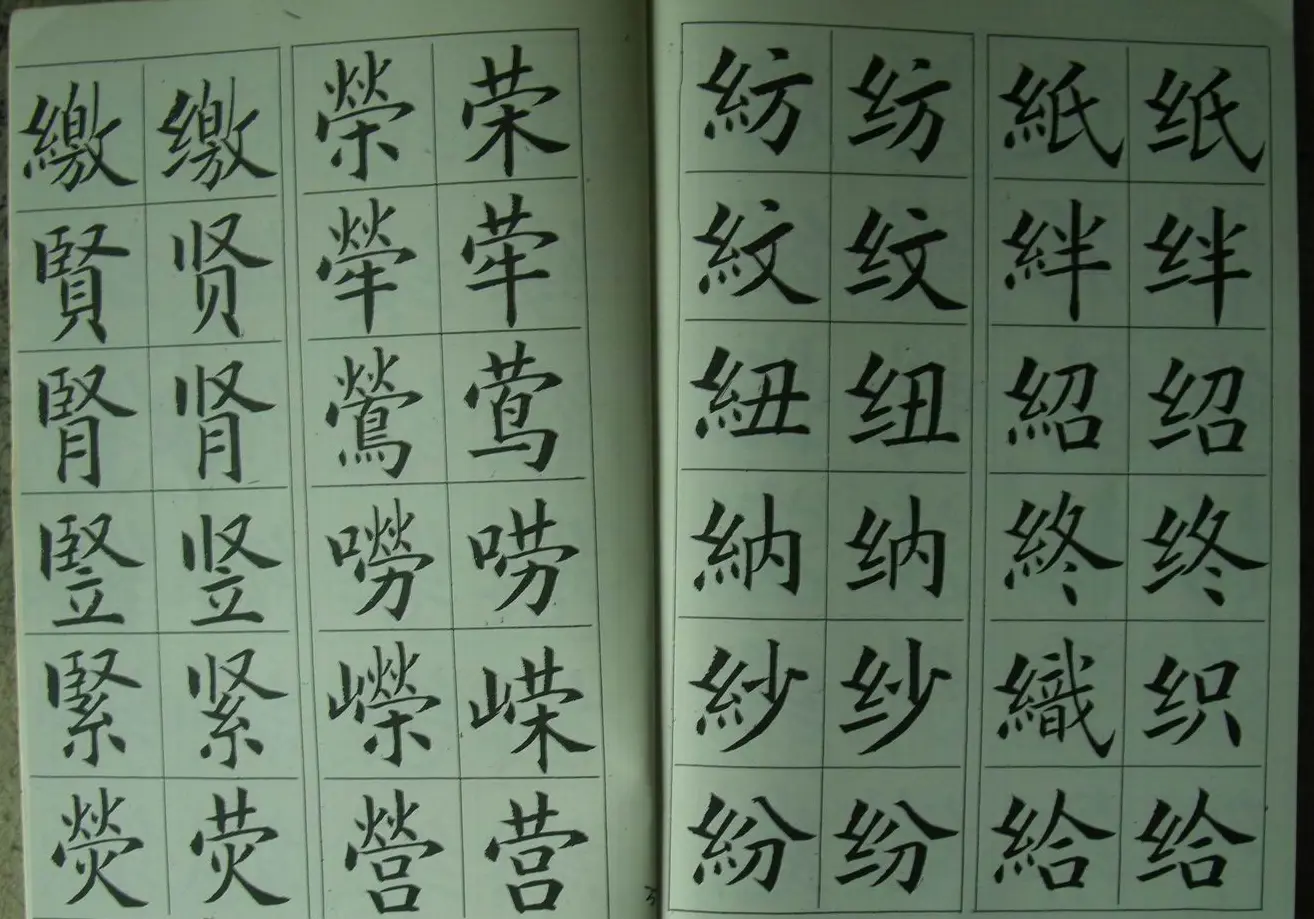 繳 缴
賢 贤
腎 肾
豎 竖
緊 紧
熒 荧
榮 荣
犖 荦
鶯 莺
嘮 唠
嶸 嵘
營 营
紡 纺
紋 纹
紐 纽
納 纳
紗 纱
紛 纷
紙 纸
絆 绊
紹 绍
終 终
織 织
給 给